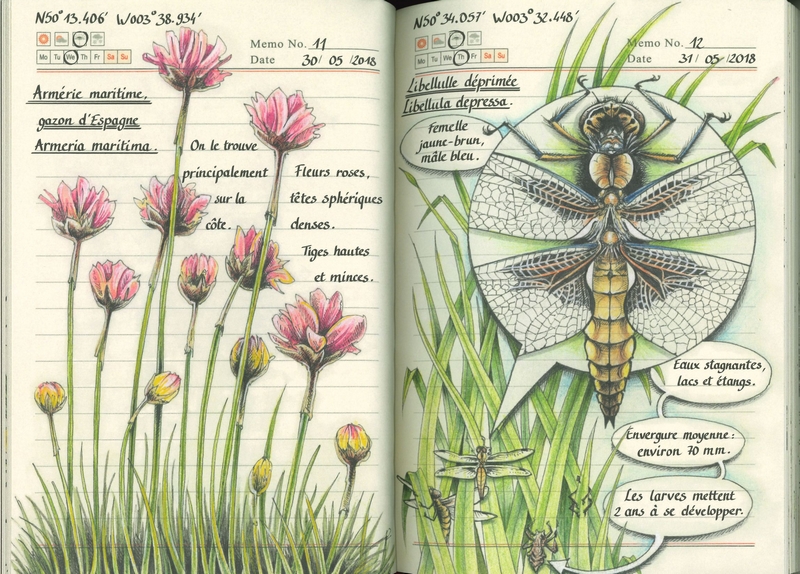 N50°13.406′ W003°38.934′
Memo No. 11
Mo Tu We Th Fr Sa Su
Date 30/ 05 /2018
Armérie maritime,
gazon d'Espagne
Armeria maritima.
On le trouve
principalement
sur la
côte.
Fleurs roses,
têtes sphériques
denses.
Tiges hautes
et minces.
N50°34.057′ W003°32.448′
Memo No. 12
Mo Tu We Th Fr Sa Su
Date 31/ 05 /2018
Libellulle déprimée
Libellula depressa.
Femelle
jaune-brun,
mâle bleu.
Eaux stagnantes,
lacs et étangs.
Envergure moyenne:
environ 70 mm.
Les larves mettent
2 ans à se développer.